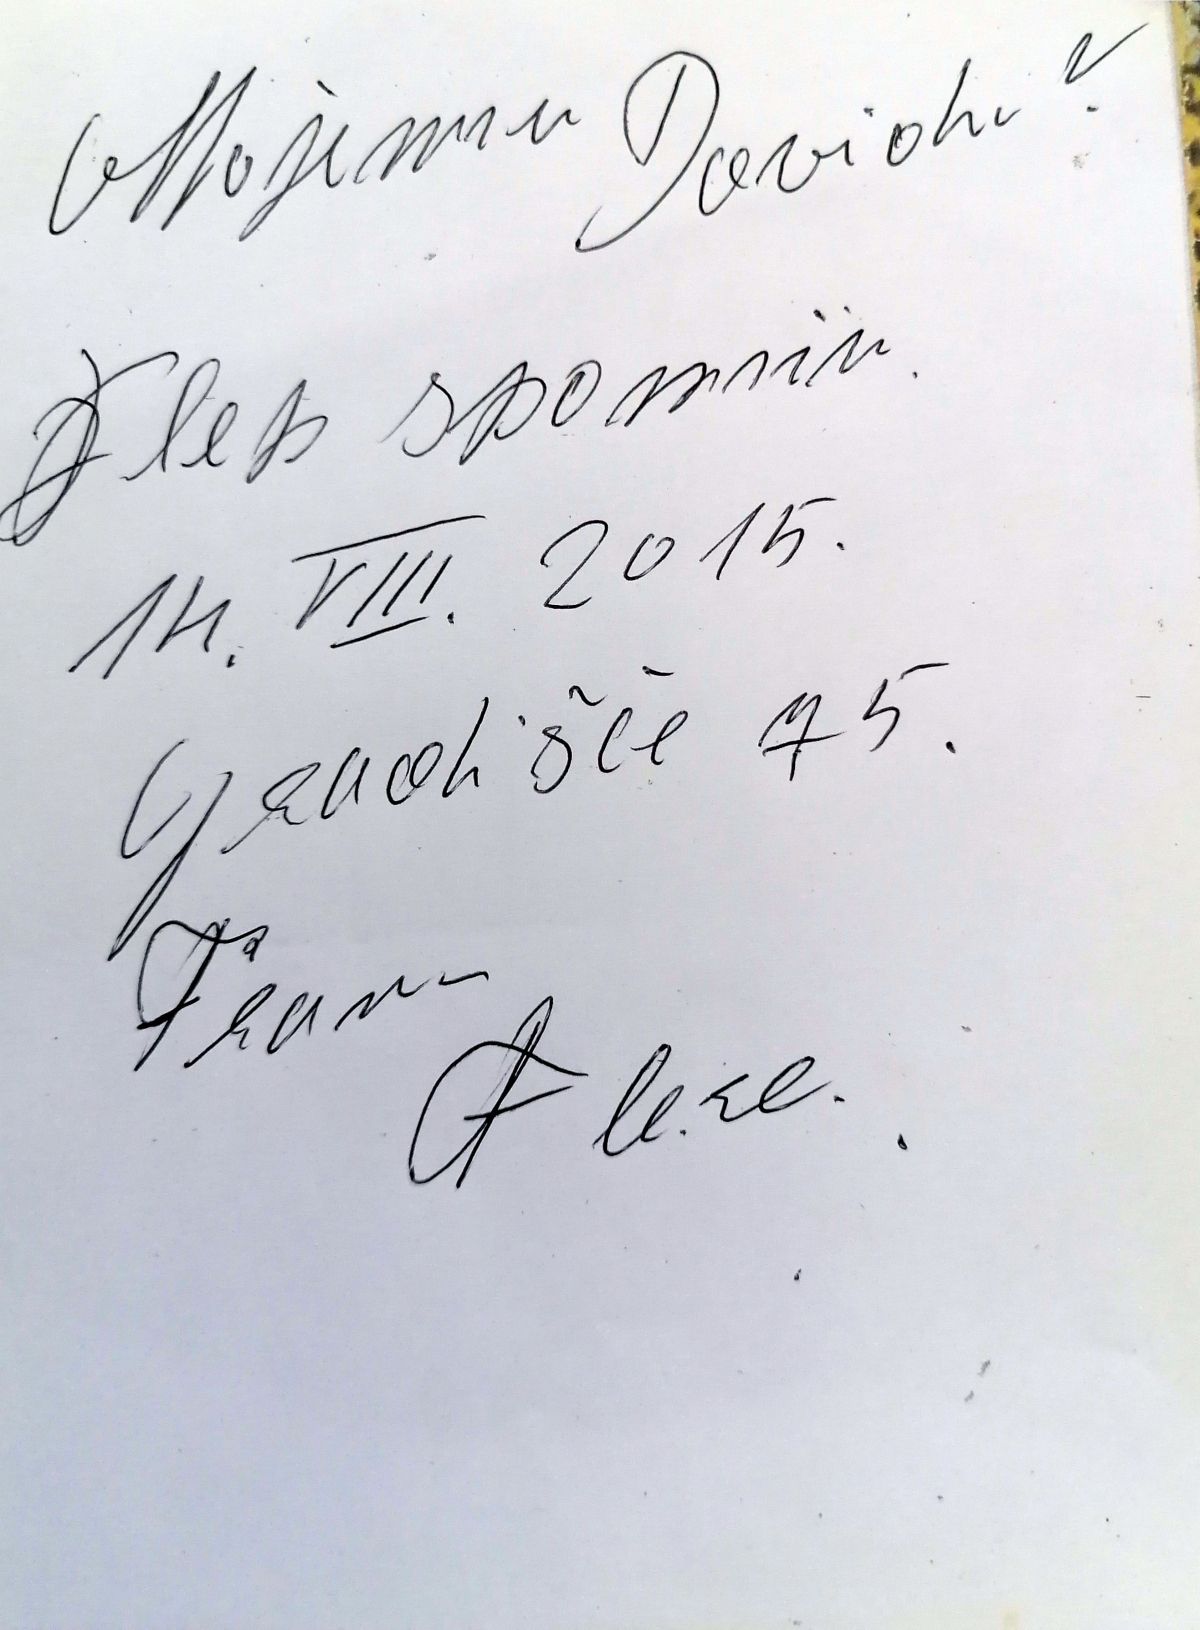 Mojemu Davidu!
V lep spomin.
14. VIII. 2015.
Gradišče 75.
Franc